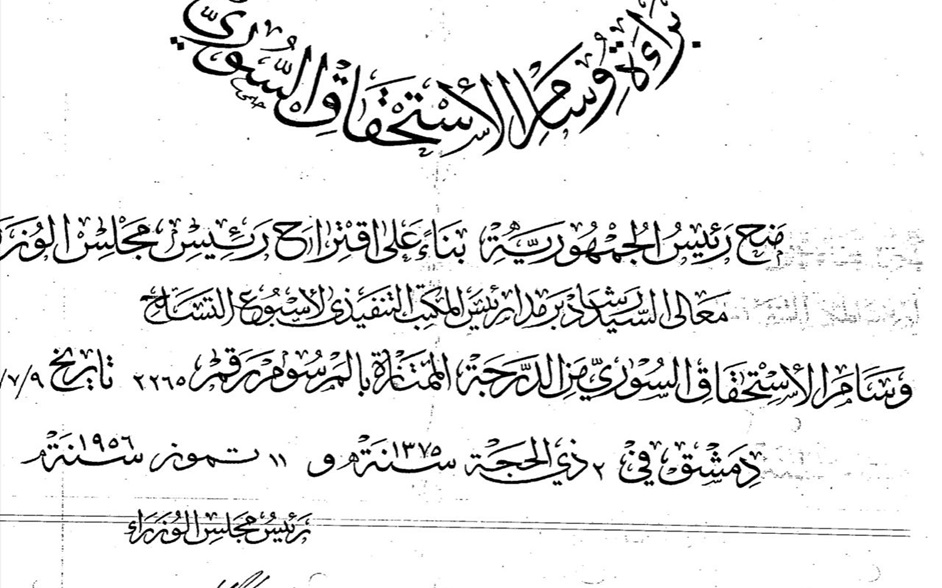 براءة وسام الاستحقاق السوري
منح رئيس الجمهورية بناء على اقتراح رئيس مجلس الوزر
معالي السيد رشاد برمدا رئيس المكتب التنفيذي لأسبوع التسلح
وسام الاستحقاق السوري من الدرجة الممتازة بالمرسوم رقم ٢٢٦٥ تاريخ ٩/٧/
دمشق في ٢ ذي الحجة سنة ١٣٧٥ هـ و ١١ تموز سنة ١٩٥٦ م
رئيس مجلس الوزراء